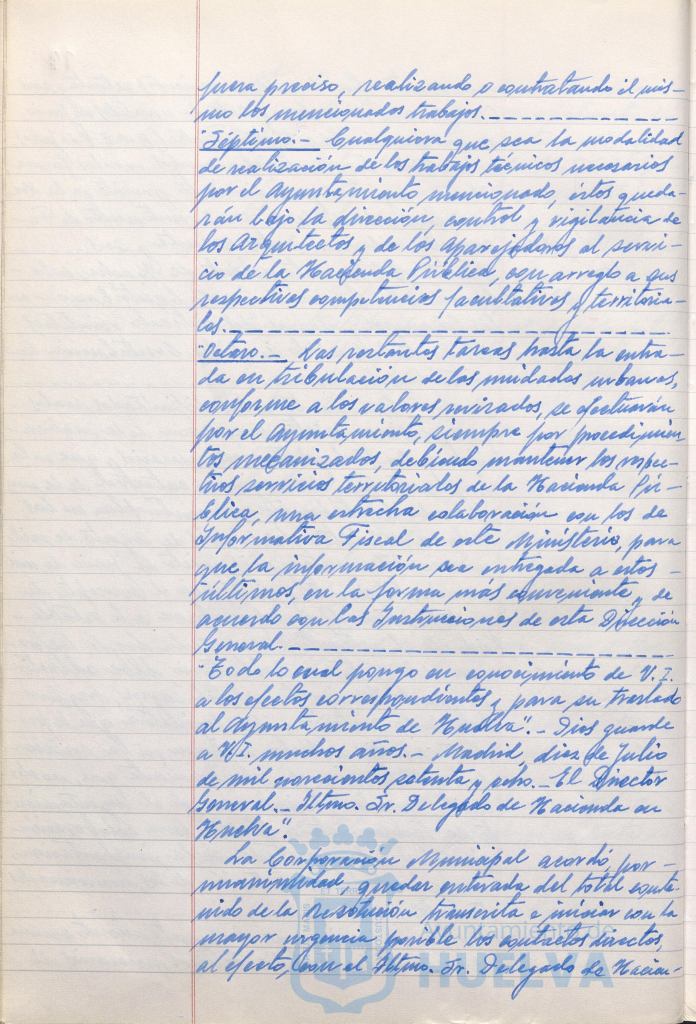 fuera preciso, realizando o contratando él mis-
mo los mencionados trabajos.
"Séptimo.- Cualquiera que sea la modalidad
de realización de los trabajos técnicos necesarios
por el Ayuntamiento mencionado, éstos queda-
rán bajo la dirección, control y vigilancia de
los Arquitectos y de los Aparejadores al servi-
cio de la Hacienda Pública, con arreglo a sus
respectivas competencias facultativas y territoria-
les.
"Octavo.- Las restantes tareas hasta la entra-
da en tributación de las unidades urbanas,
conforme a los valores revisados, se efectuarán
por el Ayuntamiento, siempre por procedimien
tos mecanizados, debiendo mantener los respec-
tivos servicios territoriales de la Hacienda Pú-
blica, una estrecha colaboración con los de
Informativa Fiscal de este Ministerio, para
que la información sea entregada a estos
últimos, en la forma más conveniente y de
acuerdo con las Instrucciones de esta Dirección
General.
"Todo lo cual pongo en conocimiento de V.I.
a los efectos correspondientes y para su traslado
al Ayuntamiento de Huelva".- Dios guarde
a V.I. muchos años.- Madrid, diez de Julio
de mil novecientos setenta y ocho.- El Director
General.- Iltmo. Sr. Delegado de Hacienda en
Huelva".
La Corporación Municipal acordó, por
unanimidad, quedar enterada del total conte-
nido de la resolución transcrita e iniciar con la
mayor urgencia posible los contactos directos,
al efecto, con el Iltmo. Sr. Delegado de Hacien-
Ayuntamiento de
HUELVA